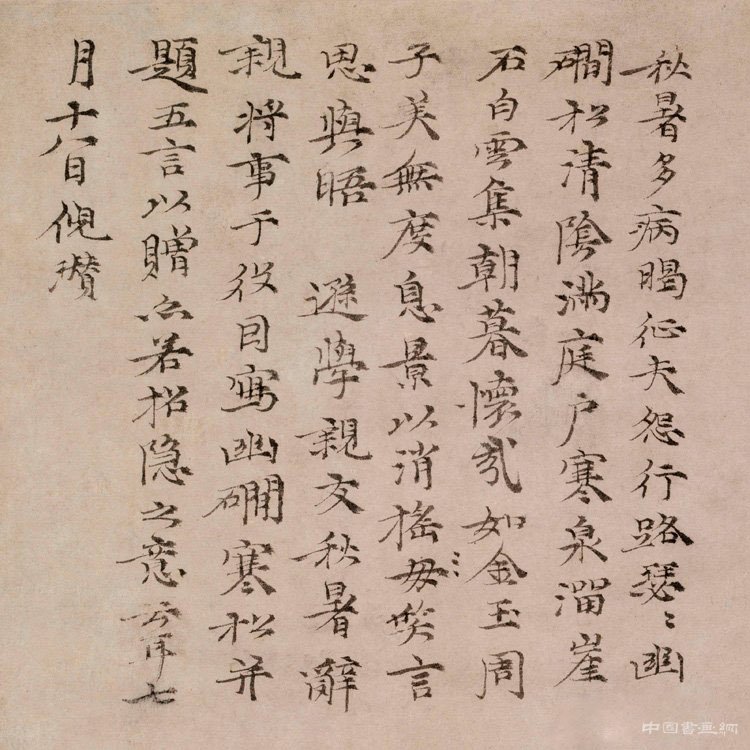 秋暑多病暍征夫怨行路瑟〻幽
磵松清陰滿庭户寒泉溜崖
石白雲集朝暮懷哉如金玉周
子美無度息景以消搖毋笑言
思與晤 遜學親友秋暑辭
親將事于役因寫幽磵寒松并
題五言以贈亦若招隐之意云耳七
月十八日倪瓚
中国書画網